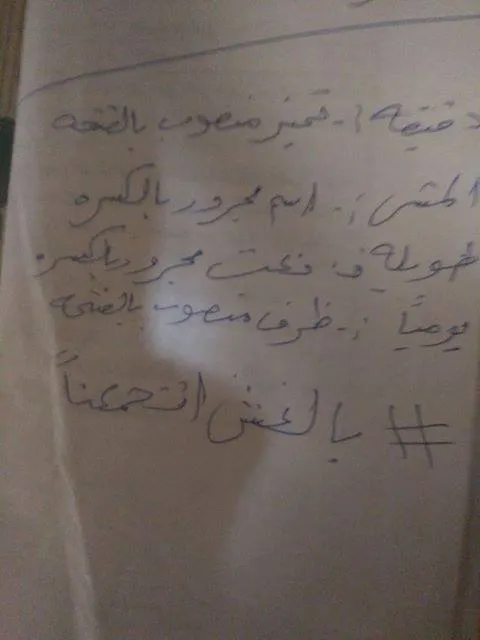 دقيقه :- تميز منصوب بالفتحه
المشي :- اسم مجرور بالكسره
طويلة :- نعت مجرور بالكسر
يومياً :- ظرف منصوب بالفتحه
# بالغش اتجمعنا